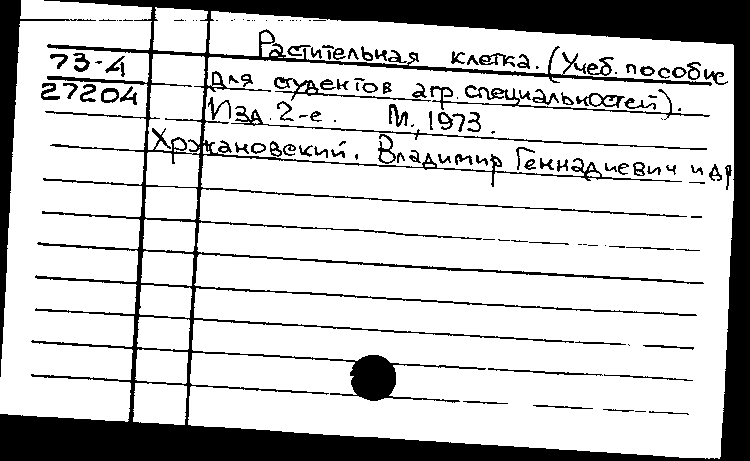 Растительная клетка. (Учеб. пособие
73-4
для студентов агр. специальностей).
27204
Изд. 2-е. М., 1973.
Хржановский, Владимир Геннадиевич и др